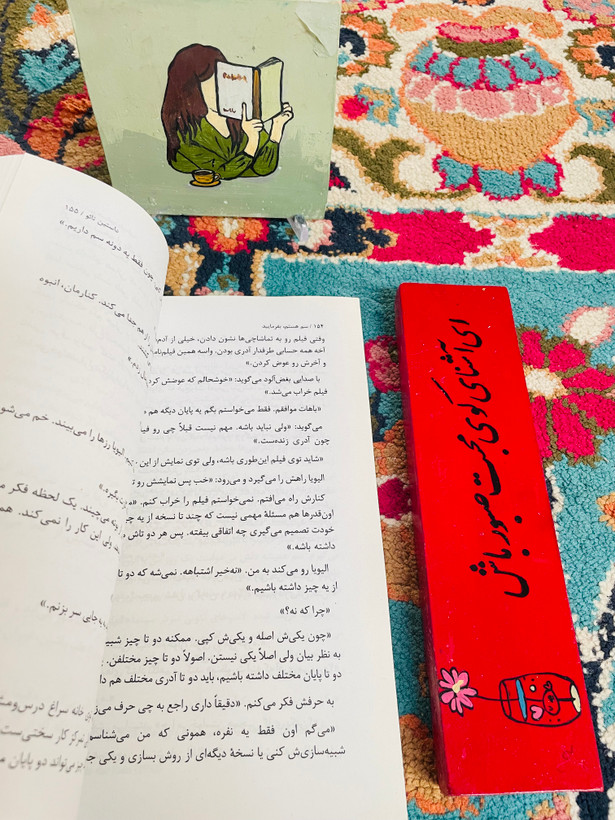 ۱۵۵ / جاستین نائو
چون فقط یه دونه سم داریم.»
از هم جدا می‌کند. کنارمان، انبوه
الیویا رزها را می‌بیند. خم می‌شو
می‌چیند. یک لحظه فکر م
ولی این کار را نمی‌کند. هم
به جایی سر بزنم.»
خانه سراغ درس‌ومش
تمرکز کار سختی‌ست
می‌تواند دو پایان م
۱۵۴ / سم هستم، بفرمایید
وقتی فیلم رو به تماشاچی‌ها نشون دادن، خیلی از آدم
آخه همه حسابی طرفدار آدری بودن. واسه همین فیلم‌نام
و آخرش رو عوض کردن.»
با صدایی بغض‌آلود می‌گوید: «خوشحالم که عوضش کرد
فیلم خراب می‌شد.»
«باهات موافقم. فقط می‌خواستم بگم یه پایان دیگه هم د
می‌گوید: «ولی نباید باشه. مهم نیست قبلاً چی رو فیل
چون آدری زنده‌ست.»
«شاید توی فیلم این‌طوری باشه، ولی توی نمایش از این
الیویا راهش را می‌گیرد و می‌رود: «خب پس نمایشش رو
کنارش راه می‌افتم. نمی‌خواستم فیلم را خراب کنم.
اون‌قدرها هم مسئلهٔ مهمی نیست که چند تا نسخه از یه چی
خودت تصمیم می‌گیری چه اتفاقی بیفته. پس هر دو تاش
داشته باشه.»
الیویا رو می‌کند به من. «نه‌خیر اشتباهه. نمی‌شه که دو تا
از یه چیز داشته باشیم.»
«چرا که نه؟»
«چون یکی‌ش اصله و یکی‌ش کپی. ممکنه دو تا چیز شبی
به نظر بیان ولی اصلاً یکی نیستن. اصولاً دو تا چیز مختلفن.
دو تا پایان مختلف داشته باشیم، باید دو تا آدری مختلف هم دا
به حرفش فکر می‌کنم. «دقیقاً داری راجع به چی حرف می‌ز
«می‌گم اون فقط یه نفره، همونی که من می‌شناسم
شبیه‌سازی‌ش کنی یا نسخهٔ دیگه‌ای از روش بسازی و یکی ج
ای آشنای کوی محبت صبور باش